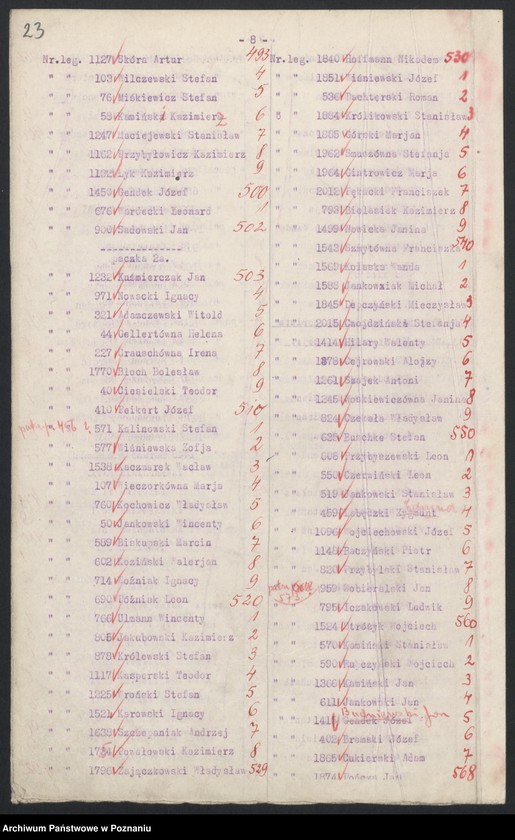 23
- 8 -
Nr.leg. 1127 Skóra Artur 493
" " 103 Wilczewski Stefan 4
" " 76 Mińkiewicz Stefan 5
" " 58 Kamiński Kazimierz 6
" " 1247 Maciejewski Stanisław 7
" " 1192 Przybyłowicz Kazimierz 8
" " Łyk Kazimierz 9
" " 1450 Gendek Józef 500
" " 676 Nardecki Leonard 1
" " 900 Sadowski Jan 502
paczka 2a.
" " 1232 Kaźmierczak Jan 503
" " 971 Nowacki Ignacy 4
" " 321 Adamczewski Witold 5
" " 44 Gellertówna Helena 6
" " 227 Irena 7
" " 1770 Bloch Bolesław 8
" " 40 Ciesielski Teodor 9
" " 410 Peikert Józef 510
" " 571 Kalinowski Stefan 1
" " 577 Wiśniewska Zofja 2
" " 1538 Kaczmarek Wacław 3
" " 107 Wieczorkówna Marja 4
" " 760 Kochowicz Władysław 5
" " 50 Jankowski Wincenty 6
" " 589 Biskupski Marcin 7
" " 602 Koziński Walerjan 8
" " 714 Woźniak Ignacy 9
" " 690 Późniak Leon 520
" " 766 Ulmann Wincenty 1
" " 805 Jakubowski Kazimierz 2
" " 878 Królewski Stefan 3
" " 1117 Kasperski Teodor 4
" " 1225 Wroński Stefan 5
" " 1521 Karowski Ignacy 6
" " 1638 Szczepaniak Andrzej 7
" " 1734 Powałowski Kazimierz 8
" " 1796 Zajączkowski Władysław 529
Nr.leg. 1840 Hoffmann Nikodem 530
" " 1851 Wiśniewski Józef 1
" " 536 Duchterski Roman 2
" " 1884 Królikowski Stanisław 3
" " 1885 Górski Marjan 4
" " 1962 Stefanja 5
" " 1964 Piotrowicz Marja 6
" " 2012 Rękacki Franciszek 7
" " 793 Bielasiak Kazimierz 8
" " 1499 Nowicka Janina 9
" " 1543 Szmytówna Franciszka 540
" " Wanda 1
" " 1588 Jankowiak Michał 2
" " 1845 Depczyński Mieczysław 3
" " 2015 Cwojdzińska Stefanja 4
" " 1414 Hilary Walenty 5
" " 1378 Cejrowski Alojzy 6
" " 1261 Szajek Antoni 7
" " 1245 Janina 8
" " 824 Czekała Władysław 9
" " 635 Buschke Stefan 550
" " 808 Przybyszewski Leon 1
" " 550 Czerwiński Leon 2
" " 519 Jankowski Stanisław 3
" " 459 Łabęcki Zygmunt 4
" " 1096 Wojciechowski Józef 5
" " 1148 Raczyński Piotr 6
" " 820 Przybylski Stanisław 7
" " 959 Sobieralski Jan 8
" " 795 Iczakowski Ludwik 9
" " 1524 Stróżyk Wojciech 560
" " 570 Kamiński Stanisław 1
" " 590 Ratajczyk Wojciech 2
" " 1366 Kamiński Jan 3
" " 611 Jankowski Jan 4
Budniewski Jan
" " 1411 Gendek Józef 5
" " 402 Bramski Józef 6
" " 1865 Cukierski Adam 7
" " 1874 Jan 568
Archiwum Państwowe w Poznaniu